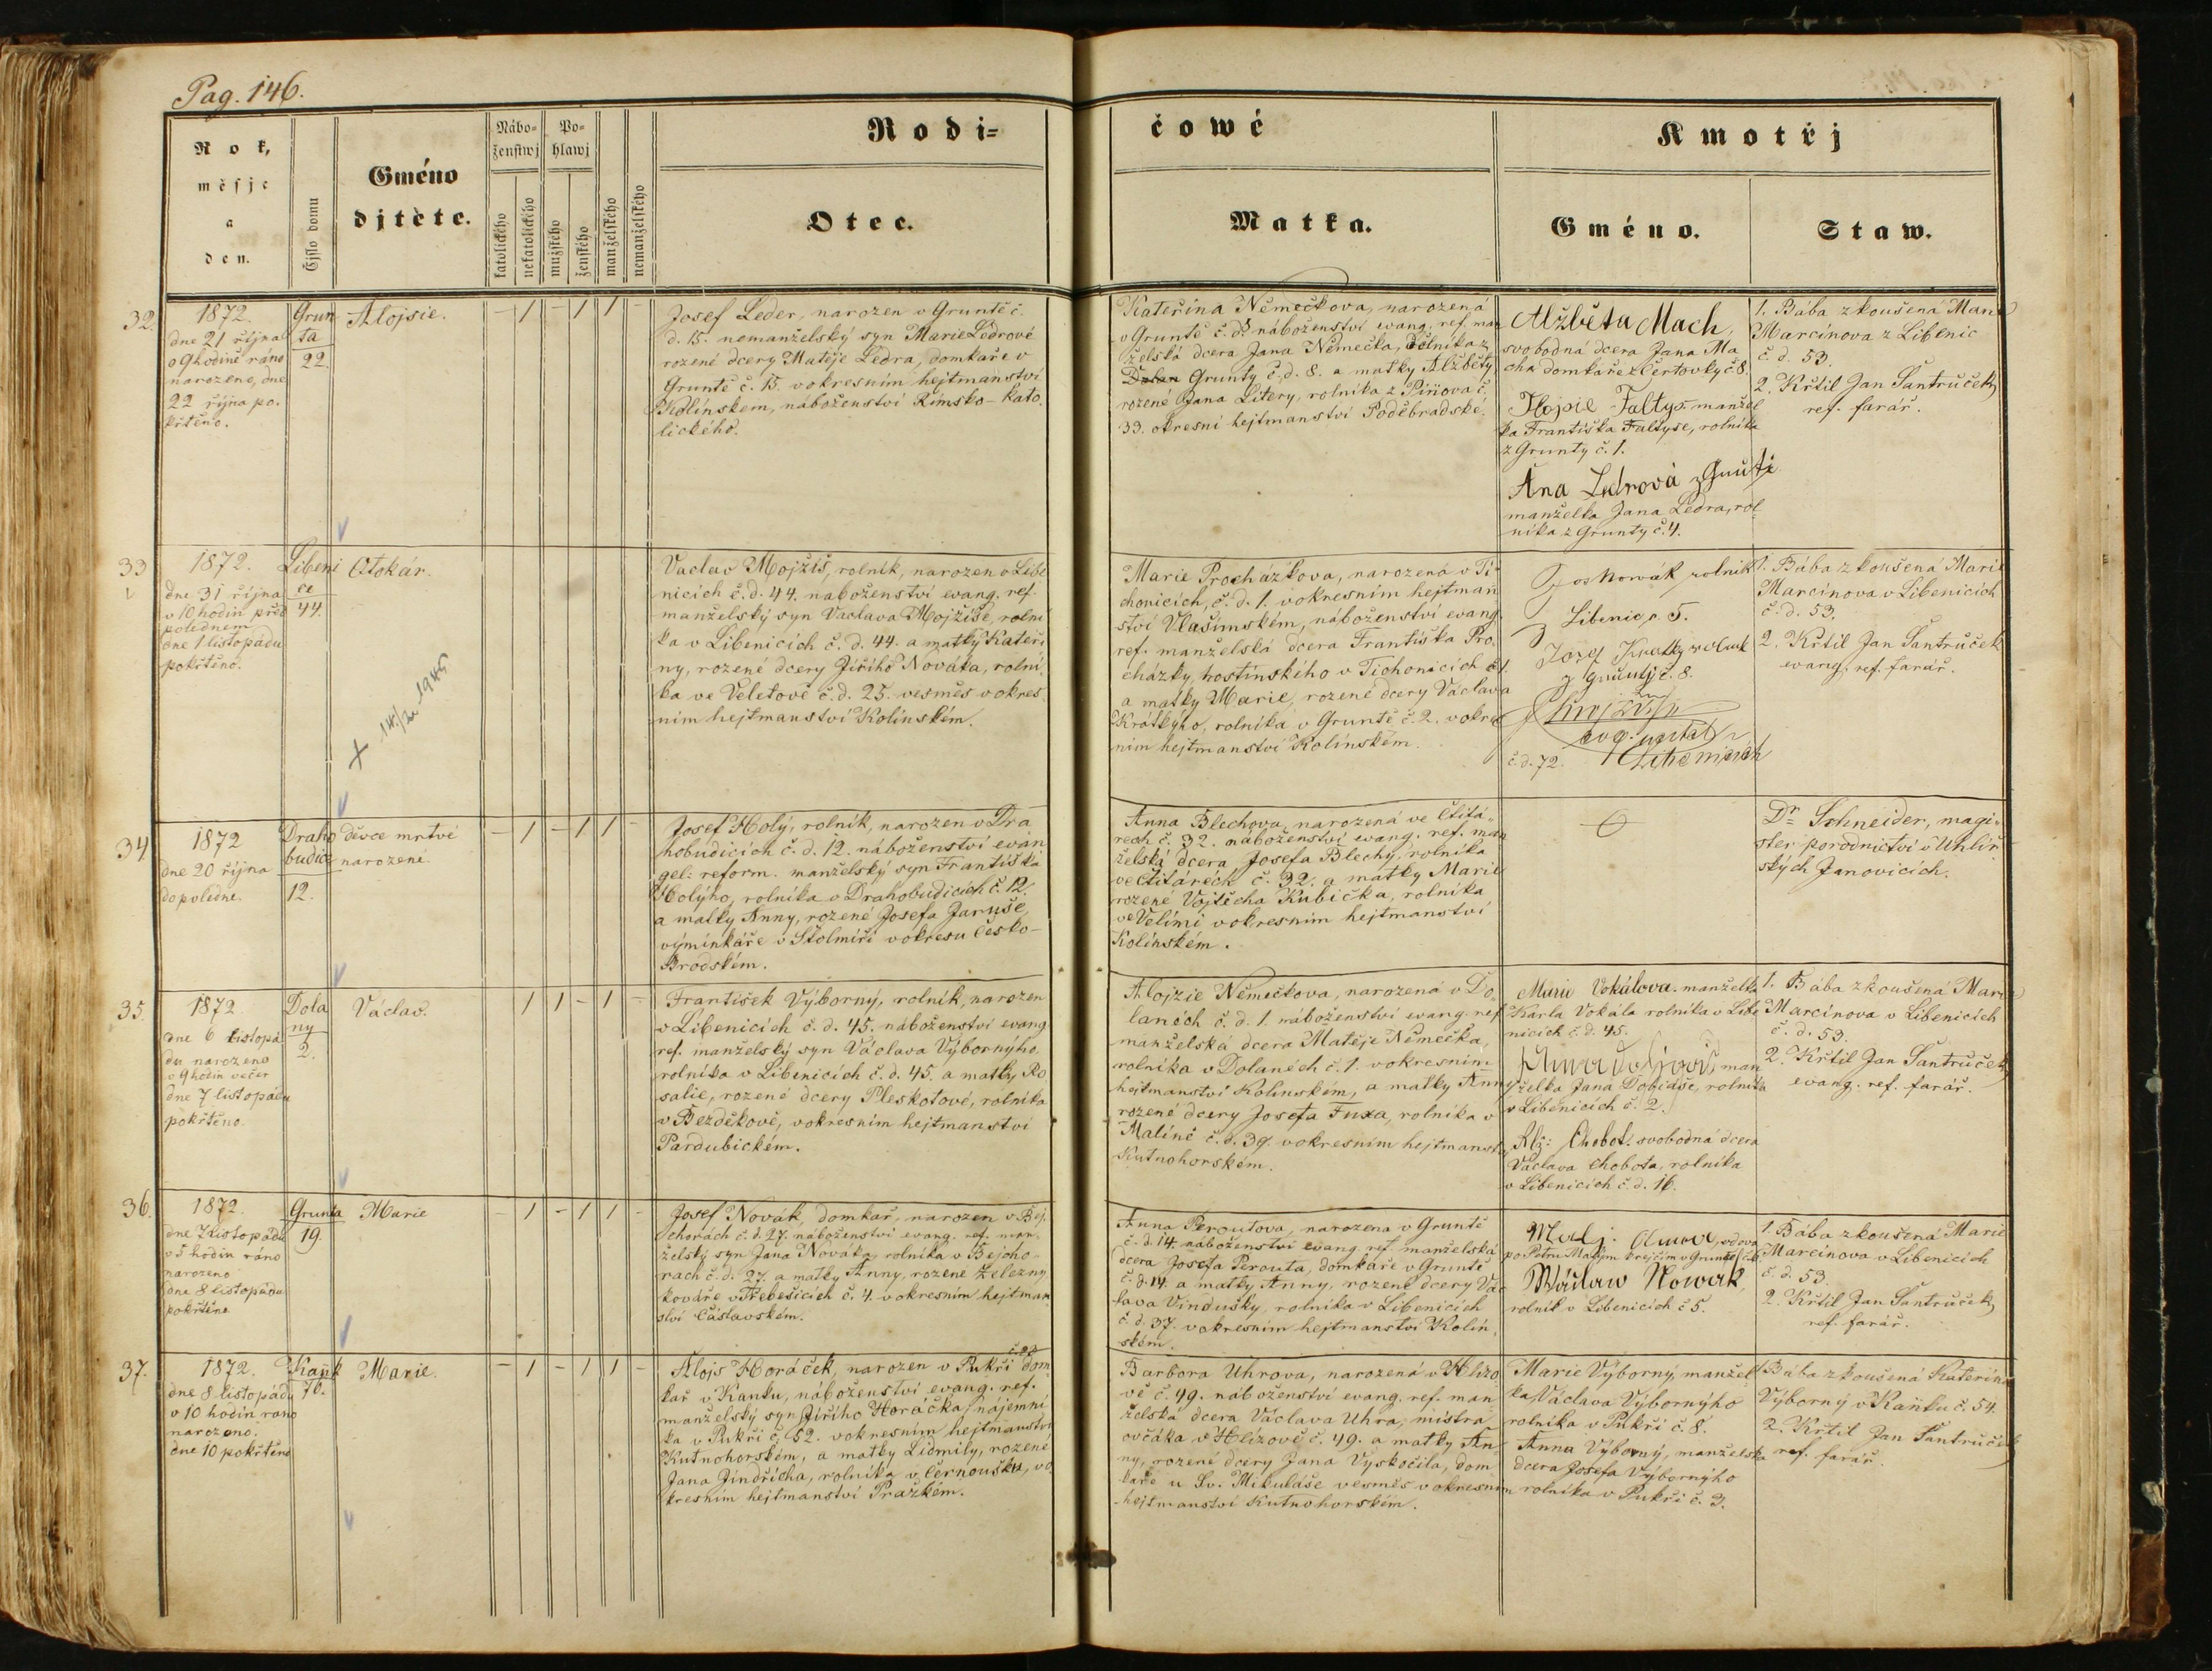 Pag. 146.
Rok, měsjc a den.
Čjslo domu
Gméno djtěte.
Nábo=ženstwj
katolického
nekatolického
Po=hlawj
mužského
ženského
manželského
nemanželského
Rodi=
čowé
Otec.
Matka.
Kmotřj
Gméno.
Staw.
32.
1872.
dne 21 října
o 9 hodině ráno
narozeno, dne
22 října po.
křtěno.
Grun
ta
22.
Alojsie.
– 1 – 1 1 –
Josef Leder, narozen v Gruntě č.
d. 15. nemanželský syn Marie Ledrové
rozené dcery Matěje Ledra, domkaře v
Gruntě č. 15. v okresním hejtmanství
Kolínském, náboženství Římsko-kato.
lického.
Kateřina Němečkova, narozená
v Gruntě č. d. 8 náboženství evang. ref. man
želská dcera Jana Němečka, rolníka z
Dolan Grunty č. d. 8. a matky Alžběty,
rozené Jana Litery, rolníka z č.
33. okresní hejtmanství Poděbradské.
Alžběta Mach,
svobodná dcera Jana Ma
cha domkaře z Čertovky č 8.
Faltys manžel
ka Františka Faltyse, rolníka
z Grunty č. 1.
Ana Ledrová z
manželka Jana Ledra, rol
níka z Grunty č. 4.
1. Bába zkoušená Marie
Marcínova z Libenic
č. d. 53.
2. Křtil Jan Šantrůček
ref. farář.
33
1872.
dne 31 října
v 10 hodin před
polednem
dne 1 listopádu
pokřtěno.
Libeni
ce
44.
Otokár.
1945
Vaclav Mojžíš, rolník, narozen v Libe
nicích č. d. 44. náboženství evang. ref.
manželský syn Vaclava Mojžíše, rolní
ka v Libenicích č. d. 44. a matky Kateři
ny, rozené dcery Jiřího Nováka, rolní
ka ve Veletově č. d. 25. vesměs v okres
ním hejtmanství Kolínském.
Marie Procházkova, narozená v Ti
chonicích, č. d. 1. v okresním hejtman
ství Vlašimském, náboženství evang.
ref. manželská dcera Františka Pro
cházky, hostinského v Tichonicích č 1.
a matky Marie, rozené dcery Václava
Krátkýho, rolníka v Gruntě č. 2. v okre
ním hejtmanství Kolínském.
Jos Nowák rolník
z Libenic 5.
Krátky
z č. 8.
č. d. 72.
1. Bába zkoušená Marie
Marcínova v Libenicích
č. d. 53.
2. Křtil Jan Šantrůček
evang. ref. farář.
34
1872
dne 20 října
dopoledne.
Draho
budice
12.
děvče mrtvé
narozené.
– 1 – 1 1 –
Josef Holý, rolník, narozen v Dra
hobudicích č. d. 12. náboženství evan
gel. reform. manželský syn Františka
Holýho, rolníka v Drahobudicích č. 12.
a matky Anny, rozené Josefa Jaruše,
výminkáře v Štolmíři v okresu Česko-
Brodském.
Anna Blechova, narozená ve Ctitá-
rech č. 32. náboženství evang. ref. man
želská dcera Josefa Blechy, rolníka
ve Ctitárech č. 32. a matky Marie
rozené Vojtěcha Kubíčka, rolníka
ve Velimi v okresním hejtmanství
Kolínském.
Dr Schneider, magi-
ster porodnictví v Uhlíř
ských Janovicích.
35.
1872
dne 6 listopá
du narozeno
v 9 hodin večer
dne 7 listopádu
pokřtěno.
Dola
ny
2.
Václav.
1 1 – 1 –
František Výborný, rolník, narozen
v Libenicích č. d. 45. náboženství evang
ref. manželský syn Václava Výbornýho
rolníka v Libenicích č. d. 45. a matky Ro
salie, rozené dcery Pleskotové, rolníka
v Bezděkově, v okresním hejtmanství
Pardubickém.
Alojzie Němečkova, narozená v Do
lanech č. d. 1. náboženství evang. ref
manželská dcera Matěje Němečka,
rolníka v Dolanech č. 1. v okresním
hejtmanství Kolínském, a matky Anny
rozené dcery Josefa Fuxa, rolníka v
Malíně č. d. 39. v okresním hejtmanství
Kutnohorském.
Marie Vokálova. manželka
Karla Vokála rolníka v Libe
nicích č. d. 45.
man
želka Jana Dobiáše, rolníka
v Libenicích č. 2.
Chobot. svobodná dcera
Václava Chobota, rolníka
v Libenicích č. d. 16.
1. Bába zkoušená Marie
Marcínova v Libenicích
č. d. 53.
2. Křtil Jan Šantrůček
evang. ref. farář.
36.
1872.
dne 7 listopádu
v 5 hodin ráno
narozeno
dne 8 listopádu
pokřtěno
Grunta
19.
Marie
– 1 – 1 1 –
Josef Novák, domkař, narozen v Bej.
chorách č. d. 27. náboženství evang. ref. man.
želský syn Jana Nováka, rolníka v Bejcho-
rach č. d. 27. a matky Anny, rozené Železný
kováře v Třebešicích č. 4. v okresním hejtman
ství Čáslavském.
Anna Peroutova, narozena v Gruntě
č. d. 14. náboženství evang. ref. manželská
dcera Josefa Perouta, domkáře v Gruntě
č. d. 14. a matky Anny, rozené dcery Vác
lava Vindušky, rolníka v Libenicích
č. d. 37. v okresním hejtmanství Kolín,
ském.
Anna, vdova
po Petru Malým krejčím v Gruntě č. 6.
Wáclaw Nowak,
rolník v Libenicích č 5.
1. Bába zkoušená Marie
Marcínova v Libenicích
č. d. 53.
2. Křtil Jan Šantrůček
ref. farář.
37.
1872.
dne 8 listopádu
v 10 hodin ráno
narozeno.
dne 10 pokřtěno
Kaňk
76.
Marie.
– 1 – 1 1 –
Alojs Horáček, narozen v Pukři dom
kář v Kaňku, náboženství evang. ref.
manželský syn Jiřího Horáčka, nájemní
ka v Pukři č. 52. v okresním hejtmanství
Kutnohorském, a matky Lidmily, rozené
Jana Jindřicha, rolníka v Černoušku, vo
kresním hejtmanství Pražkém.
Barbora Uhrova, narozená v Hlízo
vě č. 49. náboženství evang. ref. man
želská dcera Václava Uhra, mistra
ovčáka v Hlízově č. 49. a matky An
ny, rozené dcery Jana Vyskočila, dom
káře u Sv. Mikuláše vesměs v okresním
hejtmanství Kutnohorském.
Marie Výborný, manžel
ka, Václava Výbornýho
rolníka v Pukři č. 8.
Anna Výborný, manželská
dcera Josefa Výbornýho
rolníka v Pukři č. 3.
Bába zkoušená Kateřina
Výborný v Kaňku č. 54.
2. Křtil Jan Šantrůček
ref. farář.